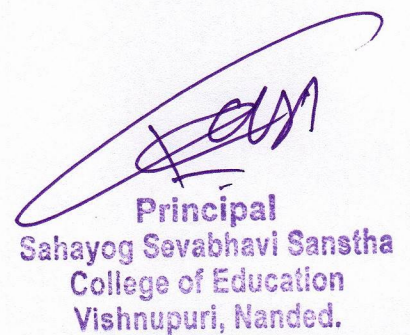 Principal
Sahayog Sevabhavi Sanstha
College of Education
Vishnupuri, Nanded.